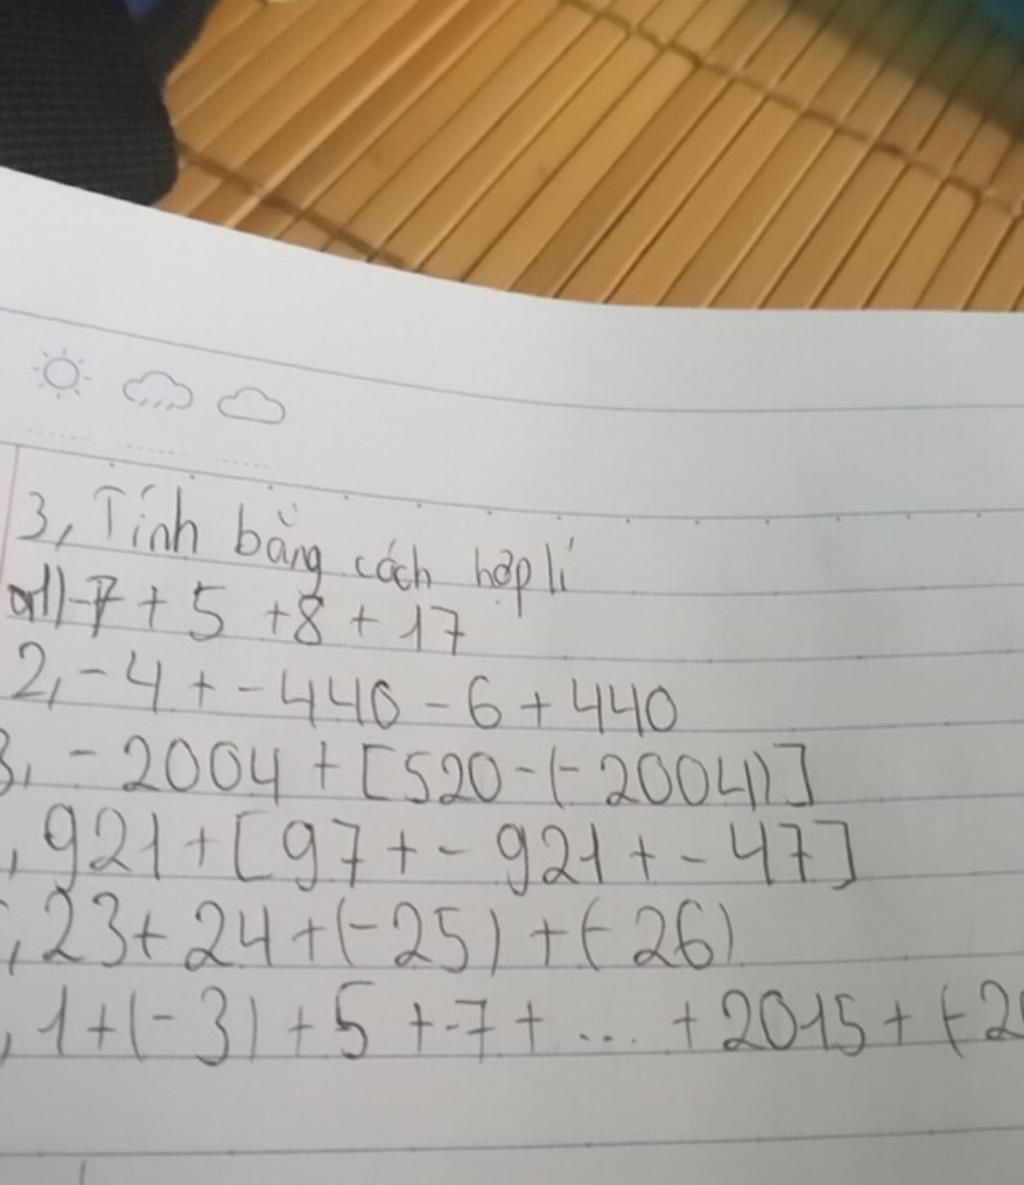 3, Tính bằng cách hợp lí
1) -7 + 5 + 8 + 17
2, - 4 + - 440 - 6 + 440
3, - 2004 + [520 - (- 2004)]
, 921 + [97 + - 921 + - 47]
, 23 + 24 + (- 25) + (- 26)
, 1 + (- 3) + 5 + -7 + ... + 2015 + (- 2